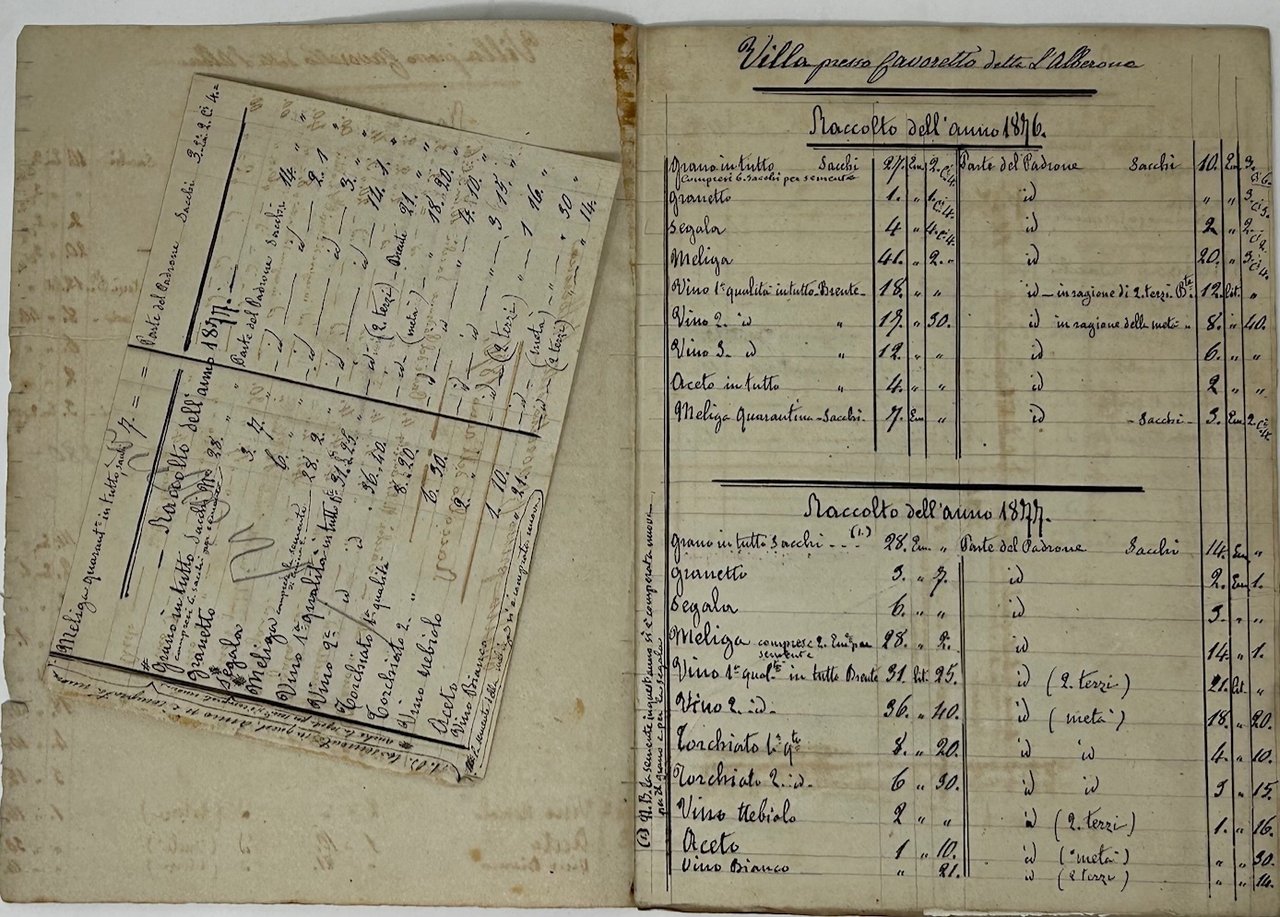 Parte del Padrone Sacchi 3. 2. Ci 4. =
Meliga quarant.ª in tutto sacchi 7. =
Raccolto dell'anno 1877. =
Grano in tutto Sacchi Nº 28. " Parte del Padrone Sacchi 14. "
(compresi 6. sacchi per semente)
Granetto 3. 7. id 2. 1
Segala 6. " id 3. "
Meliga compresi le semente 28. 2. id 14. 1.
Vino 1ª qualità in tutto Bte 31. 25. id (2. terzi) Brente 21. "
Vino 2ª id 36. 40. id (metà) 18. 20.
Torchiato 1ª qualità 8. 20. id 4. 10.
Torchiato 2. " 6. 30. id 3 15.
Vino Nebiolo 2. " id (2 terzi) 1 16.
Aceto 1. 10. id (metà) " 30
Vino Bianco " 21. id (2 terzi) " 14.
Villa presso Cavoretto detta L'Alberona
Raccolto dell'anno 1876.
Grano in tutto Sacchi 27. Em. 2. Ci 4. Parte del Padrone Sacchi 10. Em 3. Ci 6.
Compresi 6. Sacchi per semente
Granetto 1. " 1. Ci 4. id " " 3. Ci 5.
Segala 4 " 4. Ci 4. id 2 " 2. Ci 2.
Meliga 41. " 2. " id 20. " 3. Ci 4.
Vino 1ª qualità in tutto Brente 18. " " id – in ragione di 2. terzi Bte 12. Lit. "
Vino 2. id " 17. " 30. id in ragione della metà " 8. " 40.
Vino 3 id " 12. " " id 6. " "
Aceto in tutto " 4. " " id 2 " "
Meliga Quarantina Sacchi 7. Em " id Sacchi 3. Em 2. Ci 4.
Raccolto dell'anno 1877.
Grano in tutto Sacchi (1.) 28. Em " Parte del Padrone Sacchi 14. Em "
Granetto 3. " 7. id 2. Em 1.
Segala 6. " " id 3. " "
Meliga comprese 2. Emª per semente 28. " 2. id 14. " 1.
Vino 1ª qual.tà in tutto Brente 31. Lit. 25. id (2. terzi) 21. Lit. "
Vino 2. id. 36. " 40. id (metà) 18. " 20.
Torchiato 1ª q.tà 8. " 20. id id 4. " 10.
Torchiato 2. id. 6 " 30. id id 3 " 15.
Vino Nebiolo 2 " " id (2. terzi) 1. " 16.
Aceto 1 " 10. id (metà) " " 30.
Vino Bianco " 21. id (2 terzi) " " 14.
(1) N.B. La semente in quest'anno si è comperata nuova
per il grano e per la segala